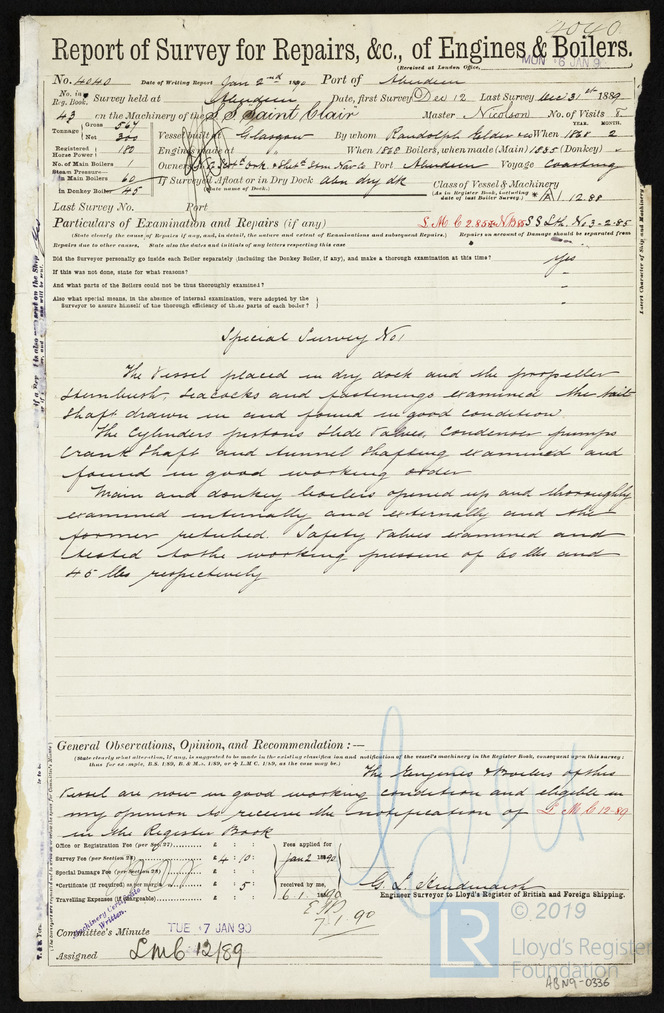 4040
Report of Survey for Repairs, &c., of Engines & Boilers.
(Received at London Office,
MON 6 JAN 9
No. 4040 Date of Writing Report Jan 2nd 1890 Port of Aberdeen
No. in Reg. Book. Survey held at Aberdeen Date, first Survey Dec 12 Last Survey Dec 31st 1889
43 on the Machinery of the SS Saint Clair Master Nicolson No. of Visits 8
Tonnage Gross 567 Net 300 Vessel built at Glasgow By whom Randolph Elder & Co When 1868 2
YEAR. MONTH.
Registered Horse Power 180 Engines made at When 1868 Boilers, when made (Main) 1885 (Donkey) -
No. of Main Boilers 1 Owners Port Aberdeen Voyage Coasting
Steam Pressure—
in Main Boilers 60 If Surveyed Afloat or in Dry Dock Abn dry dk
(State name of Dock.)
in Donkey Boiler 45
Class of Vessel & Machinery
(As in Register Book, including date of last Boiler Survey.) A 1 12.88
Last Survey No. Port
Particulars of Examination and Repairs (if any) L.M.C 2.85 & NB85 SS Lth. No 3-2-85
(State clearly the cause of Repairs if any, and, in detail, the nature and extent of Examinations and subsequent Repairs.) Repairs on account of Damage should be separated from
Repairs due to other causes. State also the dates and initials of any letters respecting this case
Did the Surveyor personally go inside each Boiler separately (including the Donkey Boiler, if any), and make a thorough examination at this time? Yes
If this was not done, state for what reasons? -
And what parts of the Boilers could not be thus thoroughly examined? -
Also what special means, in the absence of internal examination, were adopted by the
Surveyor to assure himself of the thorough efficiency of those parts of each boiler? -
Special Survey No 1
The Vessel placed in dry dock and the propeller
Sternbush, Seacocks and fastenings examined the tail
Shaft drawn in and found in good condition.
The Cylinders pistons slide Valves, Condenser pumps
Crank Shaft and tunnel Shafting examined and
found in good working order
Main and donkey boilers opened up and thoroughly
examined internally and externally and the
former retubed. Safety Valves examined and
tested to the working pressure of 60 lbs and
45 lbs respectively
General Observations, Opinion, and Recommendation :—
(State clearly what alteration, if any, is suggested to be made in the existing classification and notification of the vessel's machinery in the Register Book, consequent upon this survey;
thus for example, B.S. 1/89, B. & M.S. 1/89, or L M.C. 1/89, as the case may be.)
The Engines & Boilers of this
Vessel are now in good working condition and eligible in
my opinion to receive the notification of L M C 12-89
in the Register Book
Office or Registration Fee (per Sec. 27) £ : :
Survey Fee (per Section 28) £ 4 : 10 :
Special Damage Fee (per Section 28) £ : :
Certificate (if required) as per margin £ : 5 :
Travelling Expenses (if chargeable) £ : :
Fees applied for
Jan 2 1890
received by me,
6.1.1890
7.1.90
G. L. Hindmarsh
Engineer Surveyor to Lloyd's Register of British and Foreign Shipping.
Machinery Certificate Written.
Committee's Minute TUE 7 JAN 90
Assigned LMC 12/89
© 2019
LR
Lloyd's Register
Foundation
ABN9-0336